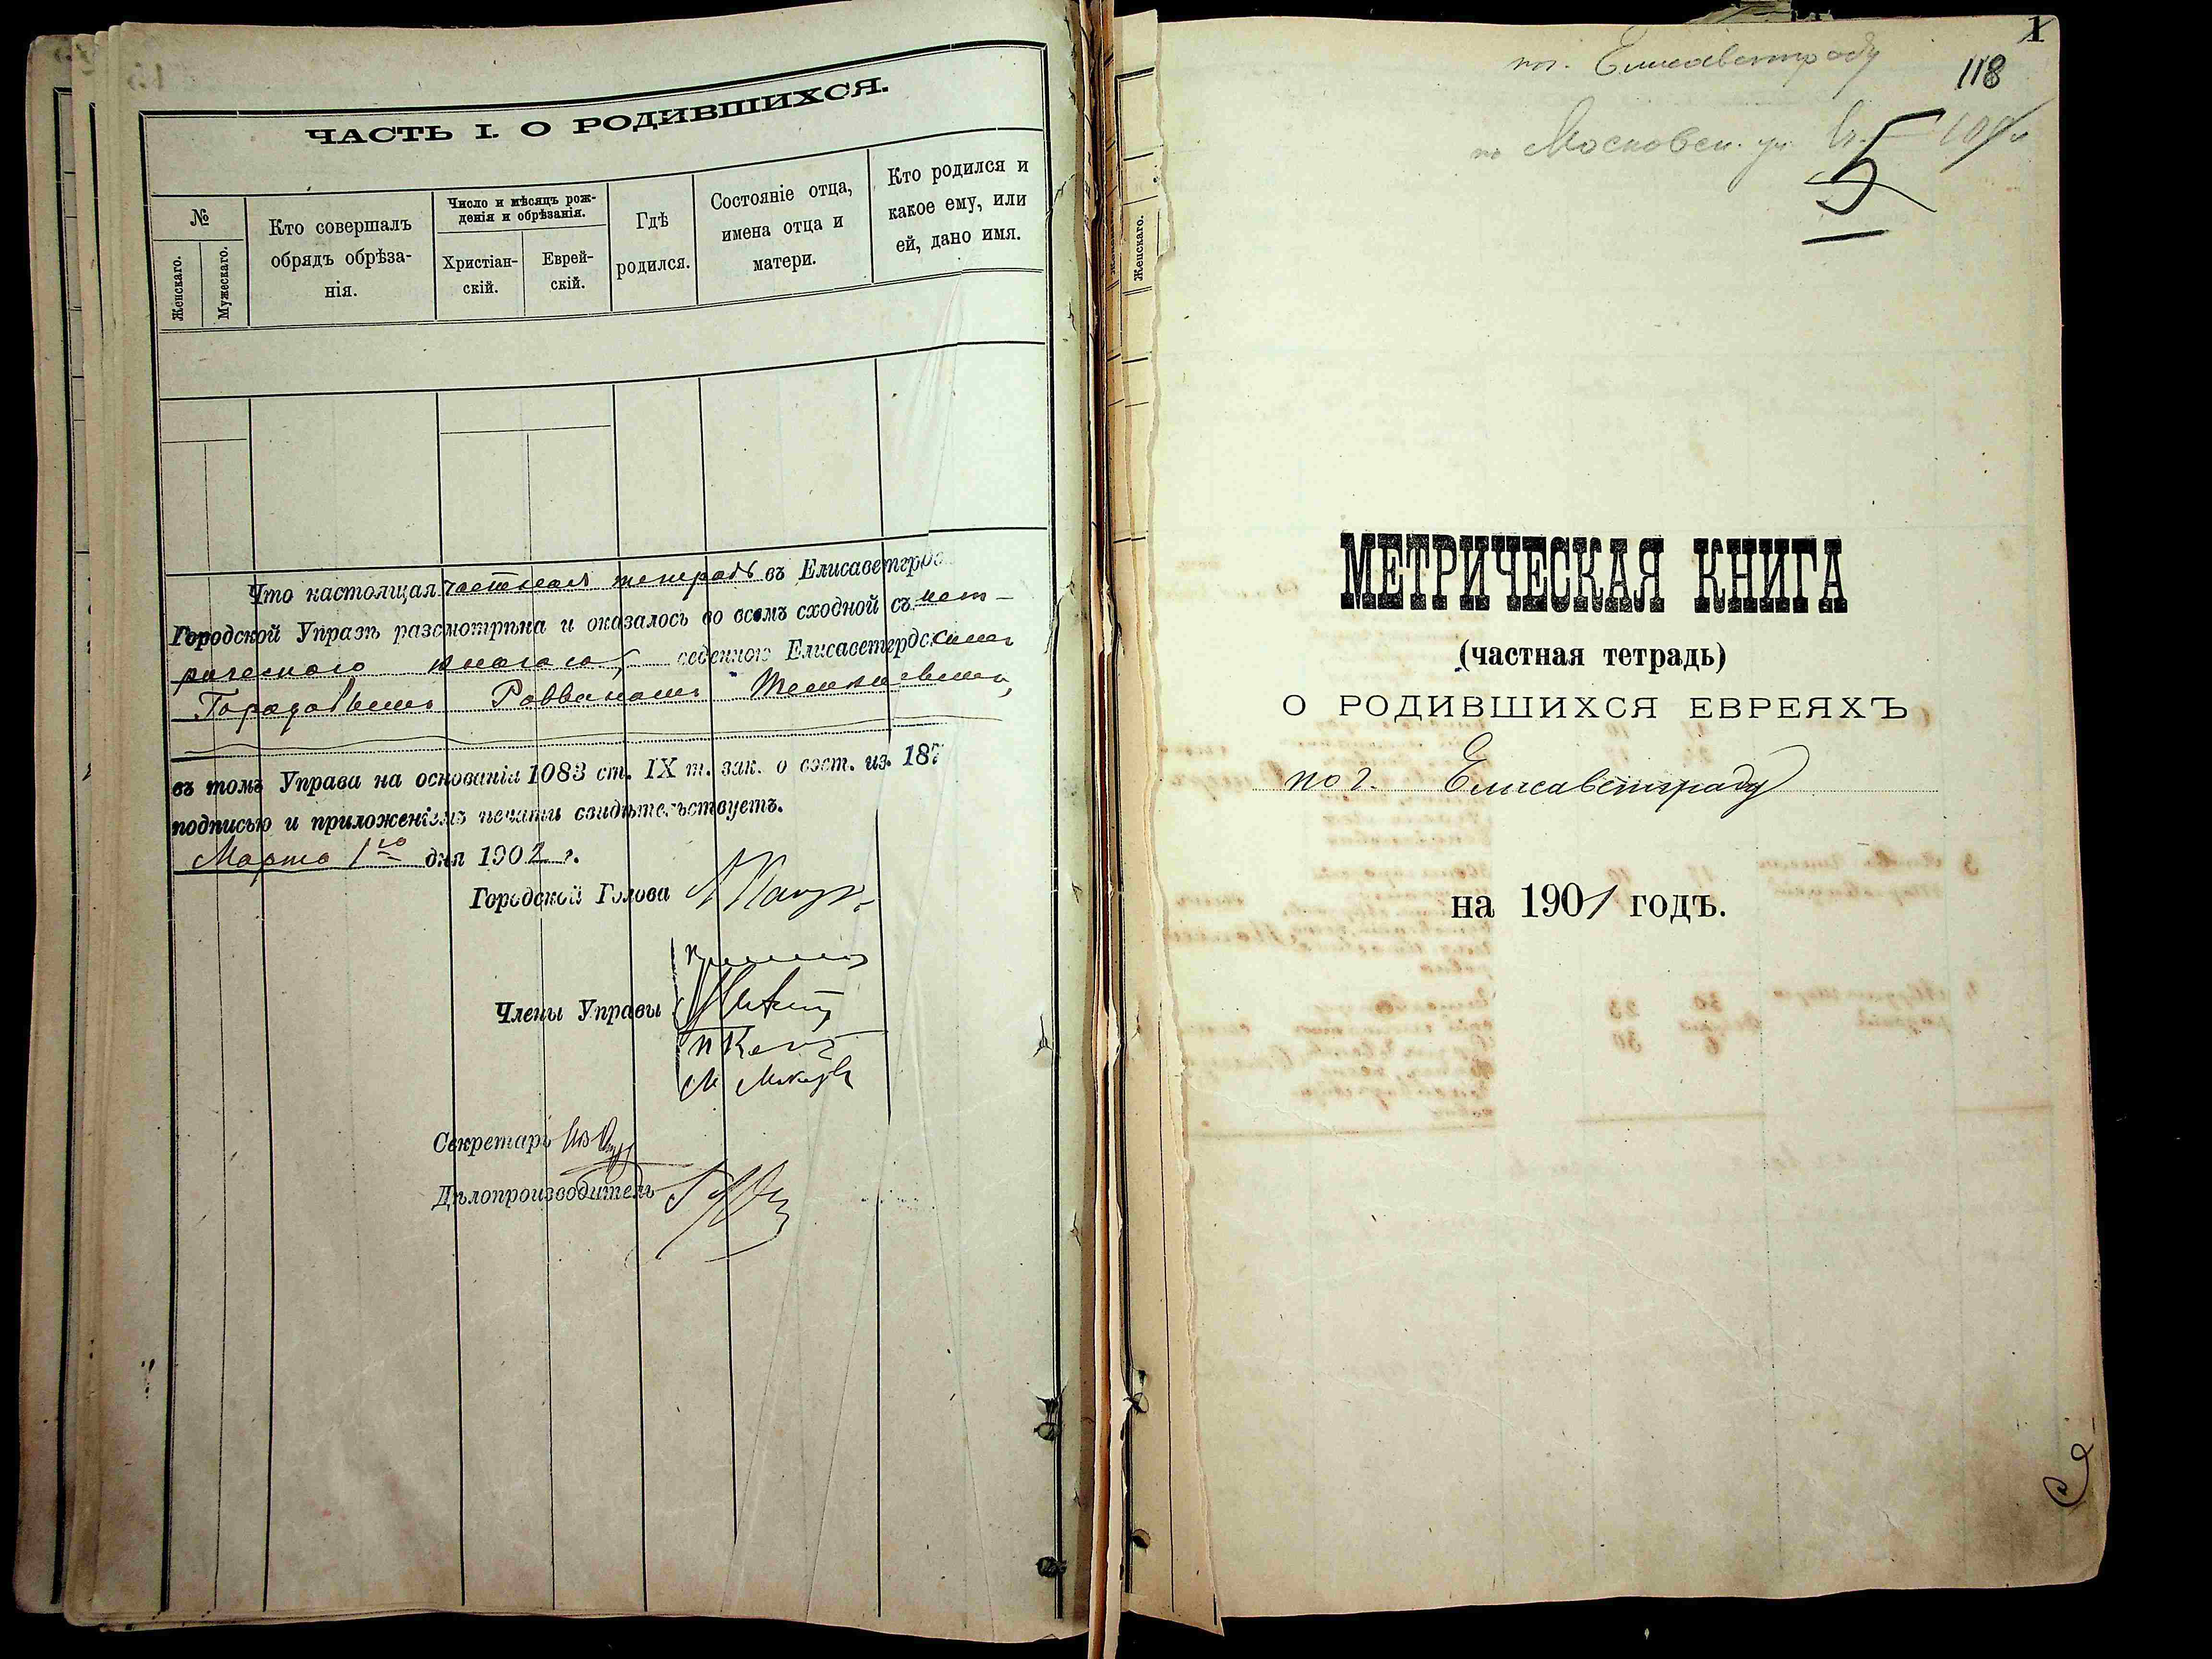 ЧАСТЬ I. О РОДИВШИХСЯ.
№
Женскаго.
Мужескаго.
Кто совершалъ
обрядъ обрѣза-
нія.
Число и мѣсяцъ рож-
денія и обрѣзанія.
Христіан-
скій.
Еврей-
скій.
Гдѣ
родился.
Состояніе отца,
имена отца и
матери.
Кто родился и
какое ему, или
ей, дано имя.
Что настоящая частная тетрадь въ Елисаветгро
Городской Управѣ разсмотрѣна и оказалось во всемъ сходной съ мет-
рическою книгою, веденною Елисаветгрдскимъ
Городовымъ Раввиномъ
въ томъ Управа на основаніи 1083 ст. IX т. зак. о сост. из. 187
подписью и приложеніемъ печати свидѣтельствуетъ.
Марта 1го дня 1902 г.
Городской Голова
Члены Управы
Секретарь
Дѣлопроизводитель
Женскаго.
1
118
по г. Елисаветграду
по Московск. ул.
5
МЕТРИЧЕСКАЯ КНИГА
(частная тетрадь)
О РОДИВШИХСЯ ЕВРЕЯХЪ
по г. Елисаветграду
на 1901 годъ.